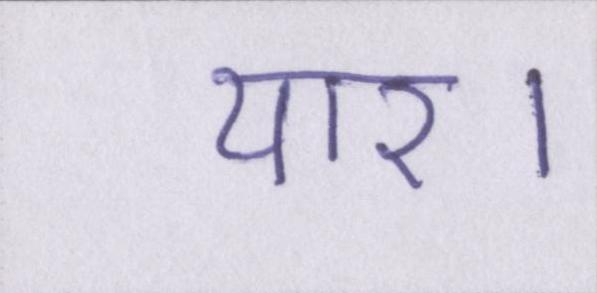 यार।